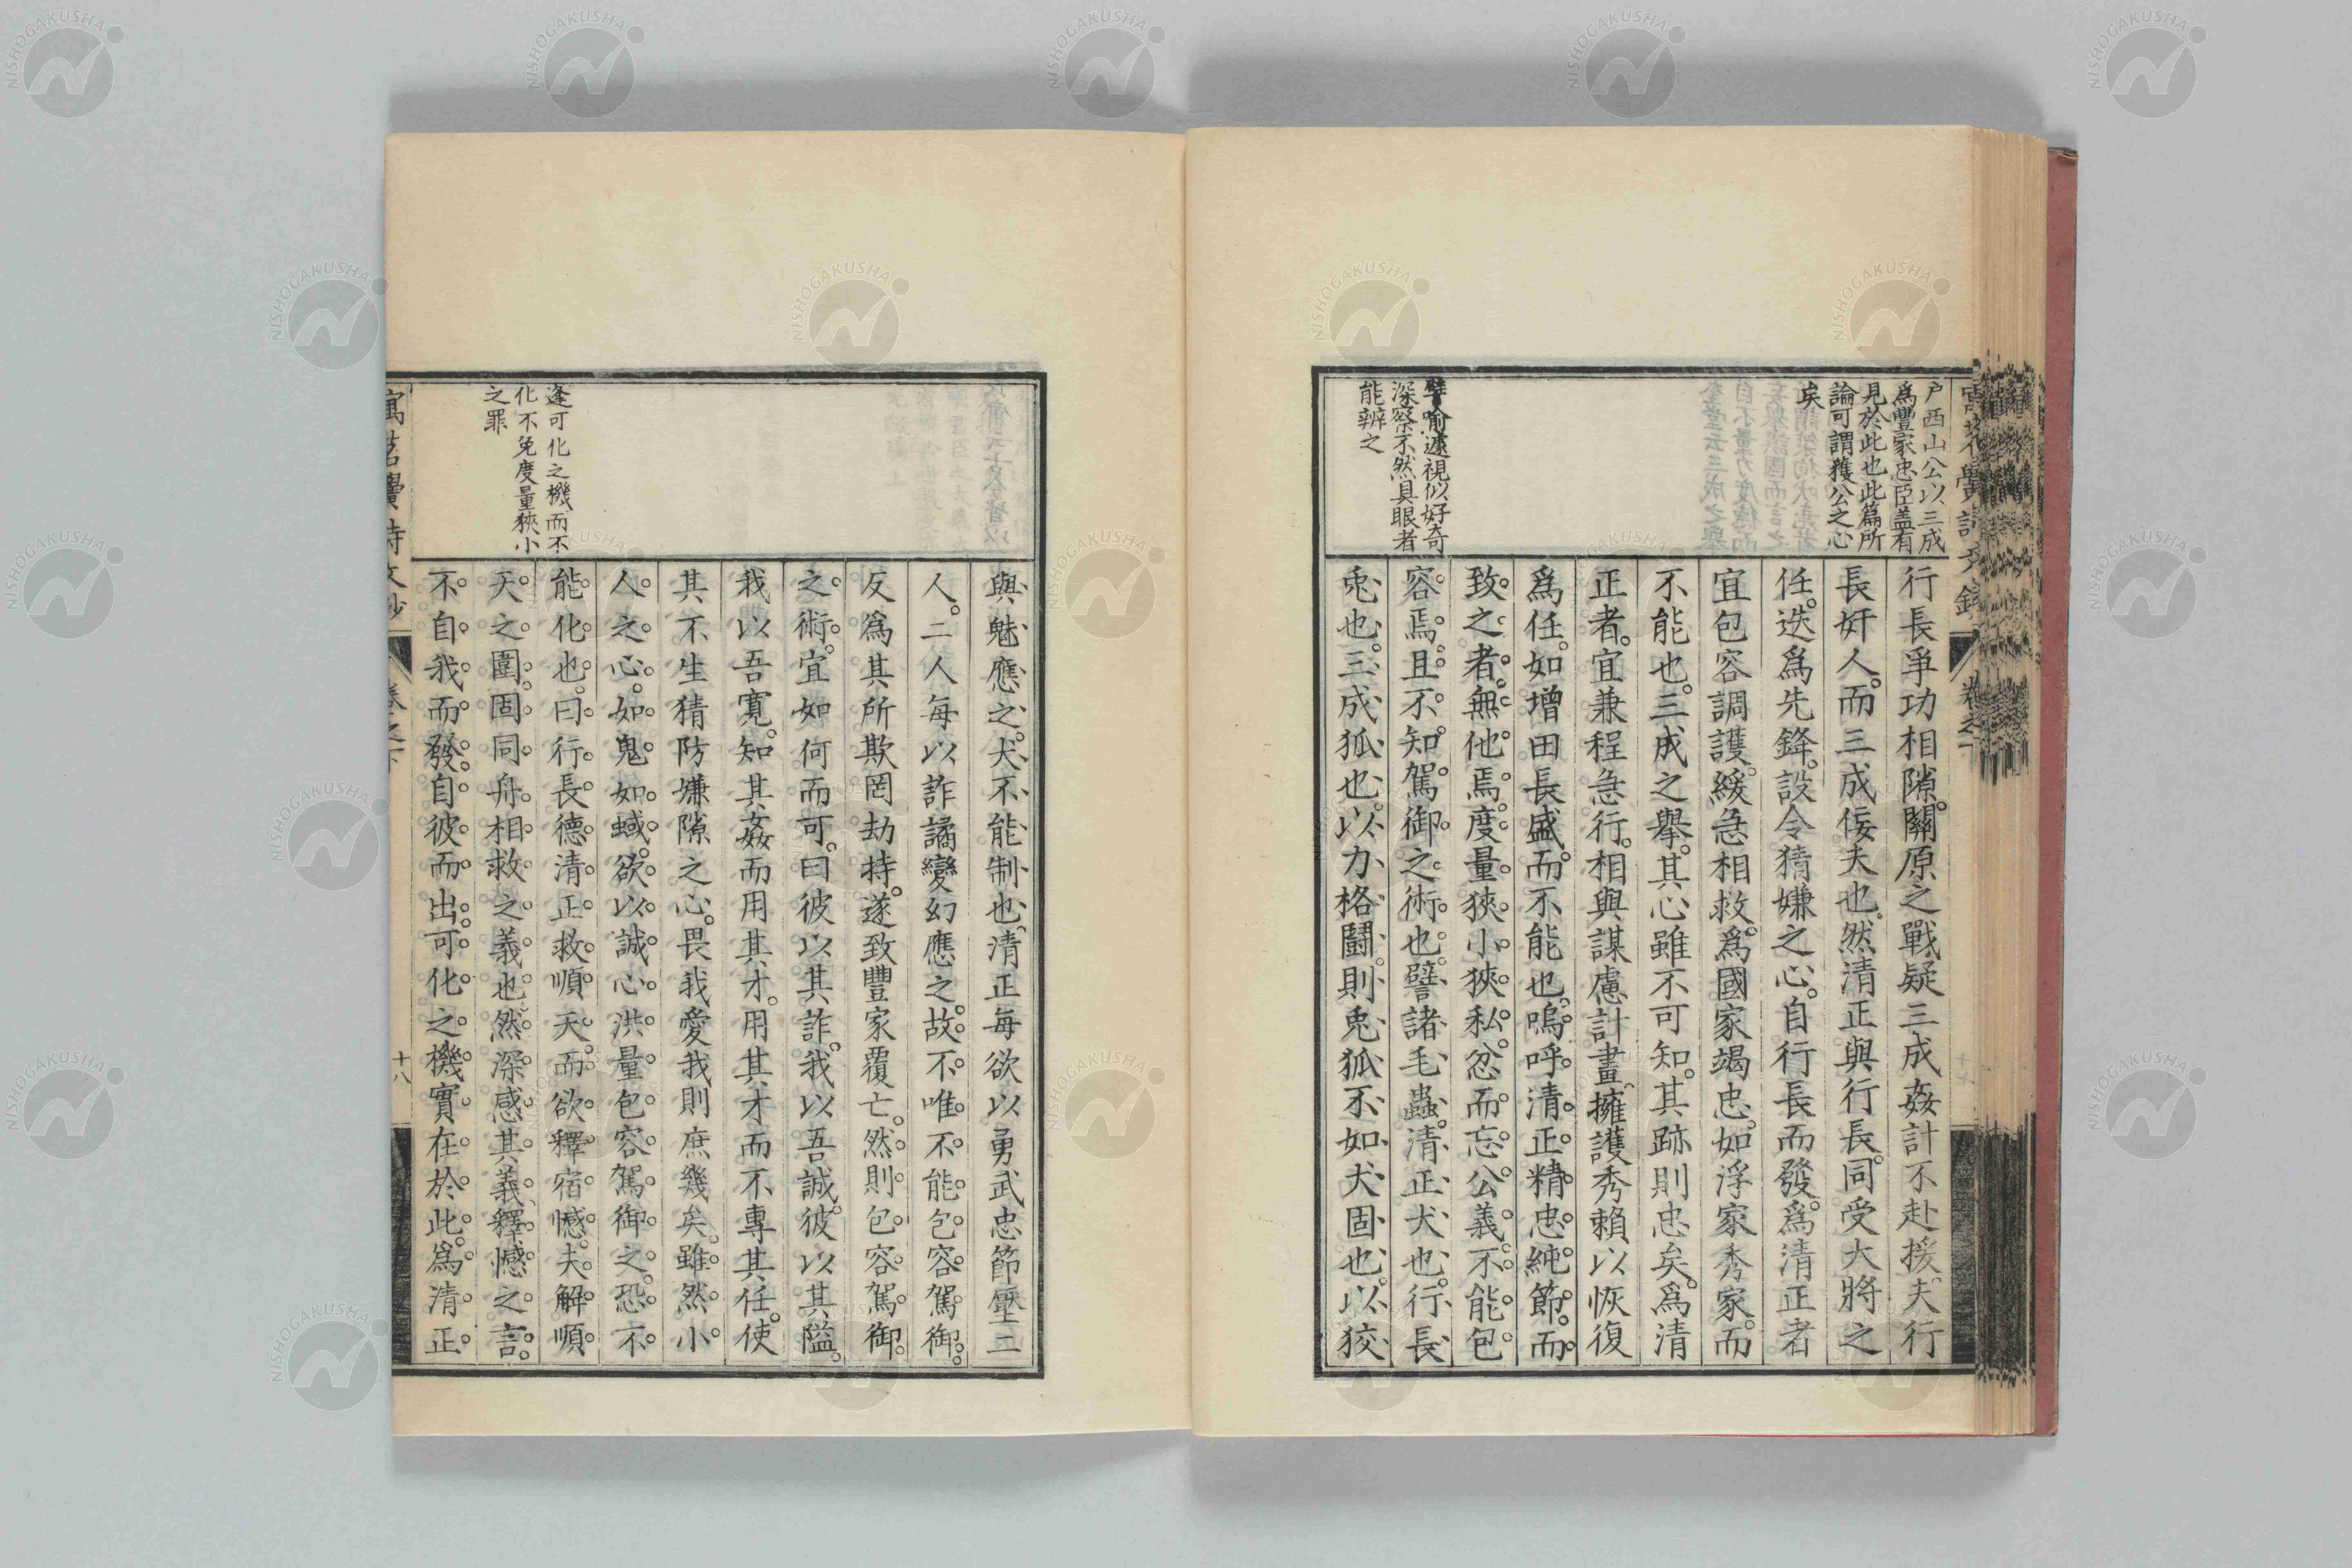 戸西山公以三成
爲豐家忠臣蓋有
見於此也此篇所
論可謂獲公之心
矣
譬喻遽視似好奇
深察不然具眼者
能辨之
行長爭功相隙。關原之戰疑三成姦計不赴援。夫行
長奸人。而三成佞夫也。然清正與行長。同受大將之
任。迭爲先鋒。設令猜嫌之心。自行長而發。爲清正者
宜包容調護。緩急相救。爲國家竭忠。如浮家秀家。而
不能也。三成之舉。其心雖不可知。其跡則忠矣。爲清
正者。宜兼程急行。相與謀慮計畫。擁護秀賴以恢復
爲任。如增田長盛。而不能也。嗚呼。清正精忠純節。而
致之者。無他焉。度量狹小。狹私。忿而忘公義。不能包
容焉。且不知駕御之術也。譬諸毛蟲。清正犬也。行長
兎也。三成狐也。以力格鬪。則兎狐不如犬固也。以狡
與魅應之。犬不能制也。清正每欲以勇武忠節壓二
人。二人每以詐譎變幻應之。故不唯不能包容駕御。
反爲其所欺罔劫持。遂致豐家覆亡。然則包容駕御
之術。宜如何而可。曰彼以其詐。我以吾誠。彼以其隘。
我以吾寬。知其姦而用其才。用其才而不專其任。使
其不生猜防嫌隙之心。畏我愛我則庶幾矣。雖然。小
人之心。如鬼如蜮。欲以誠心洪量包容駕御之。恐不
能化也。曰行長德清正救順天而欲釋宿憾。夫解順
天之圍。固同舟相救之義也。然深感其義。釋憾之言。
不自我而發。自彼而出。可化之機實在於此。爲清正
逢可化之機而不
化不免度量狹小
之罪
卷之下
十八
NISHOGAKUSHA